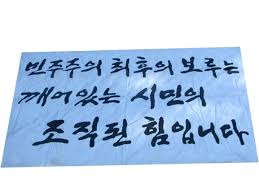 민주주의 최후의 보루는
깨어있는 시민의
조직된 힘입니다